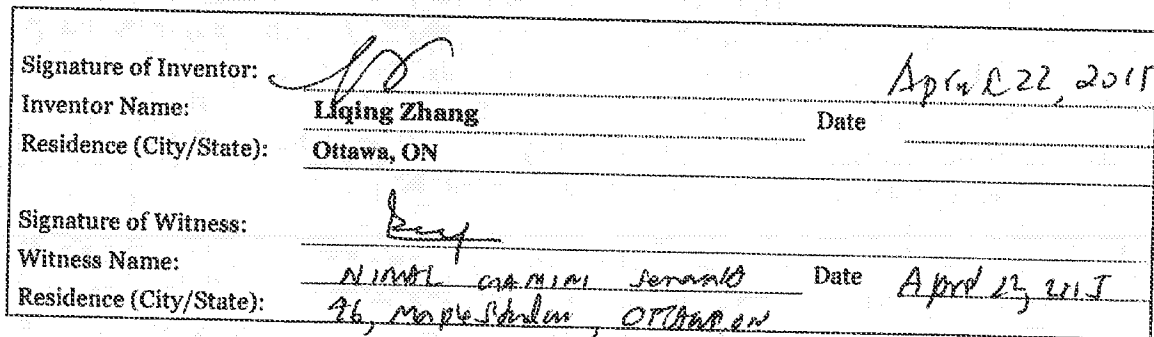 Signature of Inventor: April 22, 2015
Inventor Name: Liqing Zhang Date
Residence (City/State): Ottawa, ON
Signature of Witness:
Witness Name: NIMAL GAMINI Date April 22, 2015
Residence (City/State): Maple OTTAWA ON